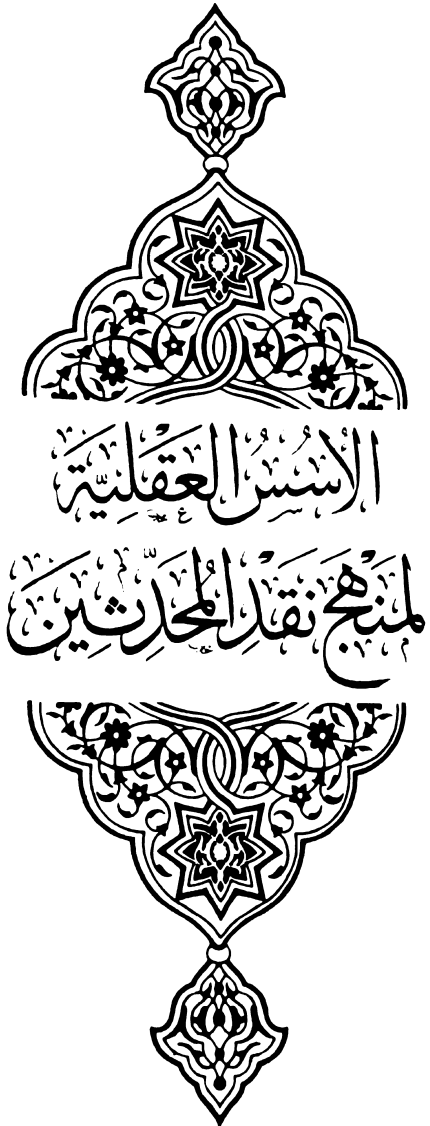 الأُسُسُ العَقْلِيَّة
لمَنْهَجِ نَقْدِ المُحَدِّثِينَ